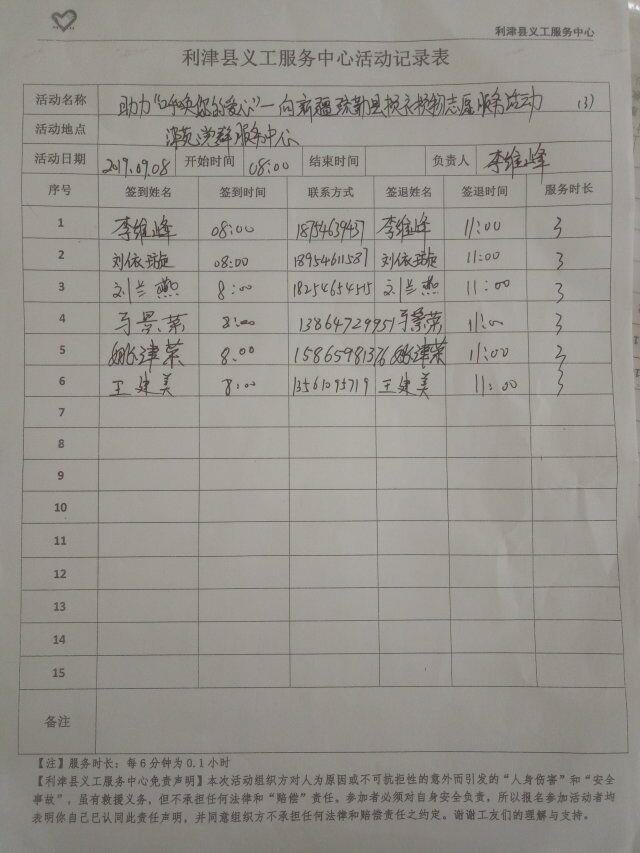 利津县义工服务中心
利津县义工服务中心活动记录表
活动名称 助力“呼唤您的爱心”—向新疆疏勒县捐衣捐物志愿服务活动 (3)
活动地点 津苑党群服务中心
活动日期 2019.09.08 开始时间 08:00 结束时间 负责人 李维峰
序号 签到姓名 签到时间 联系方式 签退姓名 签退时间 服务时长
1 李维峰 08:00 李维峰 11:00 3
2 刘依璇 08:00 18954611587 刘依璇 11:00 3
3 刘兰燕 8:00 18254654515 刘兰燕 11:00 3
4 马景荣 8:00 13864729951 马景荣 11:00 3
5 姚津荣 8.00 15865981376 姚津荣 11:00 3
6 王建美 8:00 13561095719 王建美 11:00 3
7
8
9
10
11
12
13
14
15
备注
【注】服务时长：每6分钟为0.1小时
【利津县义工服务中心免责声明】本次活动组织方对人为原因或不可抗拒性的意外而引发的“人身伤害”和“安全
事故”，虽有救援义务，但不承担任何法律和“赔偿”责任。参加者必须对自身安全负责，所以报名参加活动者均
表明你自己已认同此责任声明，并同意组织方不承担任何法律和赔偿责任之约定。谢谢工友们的理解与支持。